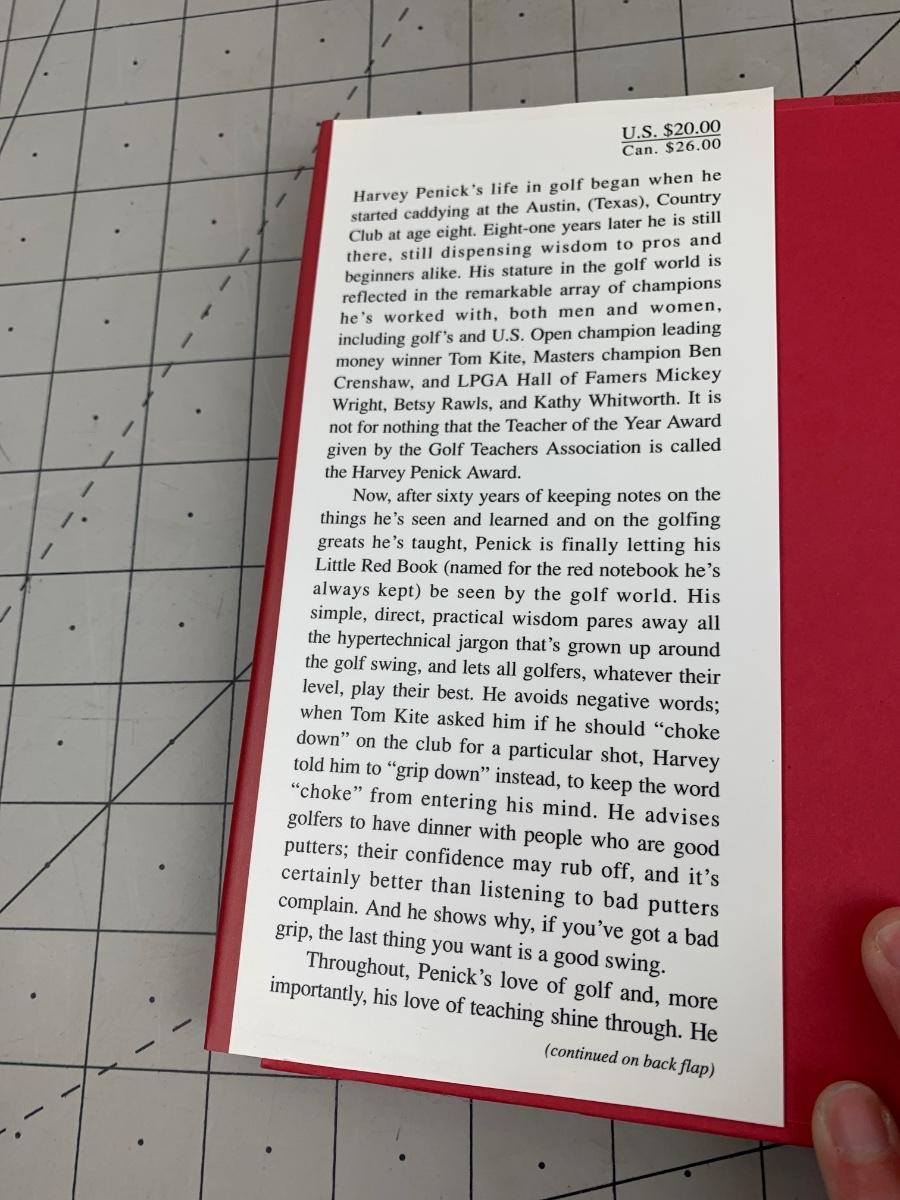 U.S. $20.00
Can. $26.00
Harvey Penick's life in golf began when he
started caddying at the Austin, (Texas), Country
Club at age eight. Eight-one years later he is still
there, still dispensing wisdom to pros and
beginners alike. His stature in the golf world is
reflected in the remarkable array of champions
he's worked with, both men and women,
including golf's and U.S. Open champion leading
money winner Tom Kite, Masters champion Ben
Crenshaw, and LPGA Hall of Famers Mickey
Wright, Betsy Rawls, and Kathy Whitworth. It is
not for nothing that the Teacher of the Year Award
given by the Golf Teachers Association is called
the Harvey Penick Award.
Now, after sixty years of keeping notes on the
things he's seen and learned and on the golfing
greats he's taught, Penick is finally letting his
Little Red Book (named for the red notebook he's
always kept) be seen by the golf world. His
simple, direct, practical wisdom pares away all
the hypertechnical jargon that's grown up around
the golf swing, and lets all golfers, whatever their
level, play their best. He avoids negative words;
when Tom Kite asked him if he should “choke
down” on the club for a particular shot, Harvey
told him to “grip down” instead, to keep the word
“choke” from entering his mind. He advises
golfers to have dinner with people who are good
putters; their confidence may rub off, and it's
certainly better than listening to bad putters
complain. And he shows why, if you've got a bad
grip, the last thing you want is a good swing.
Throughout, Penick's love of golf and, more
importantly, his love of teaching shine through. He
(continued on back flap)